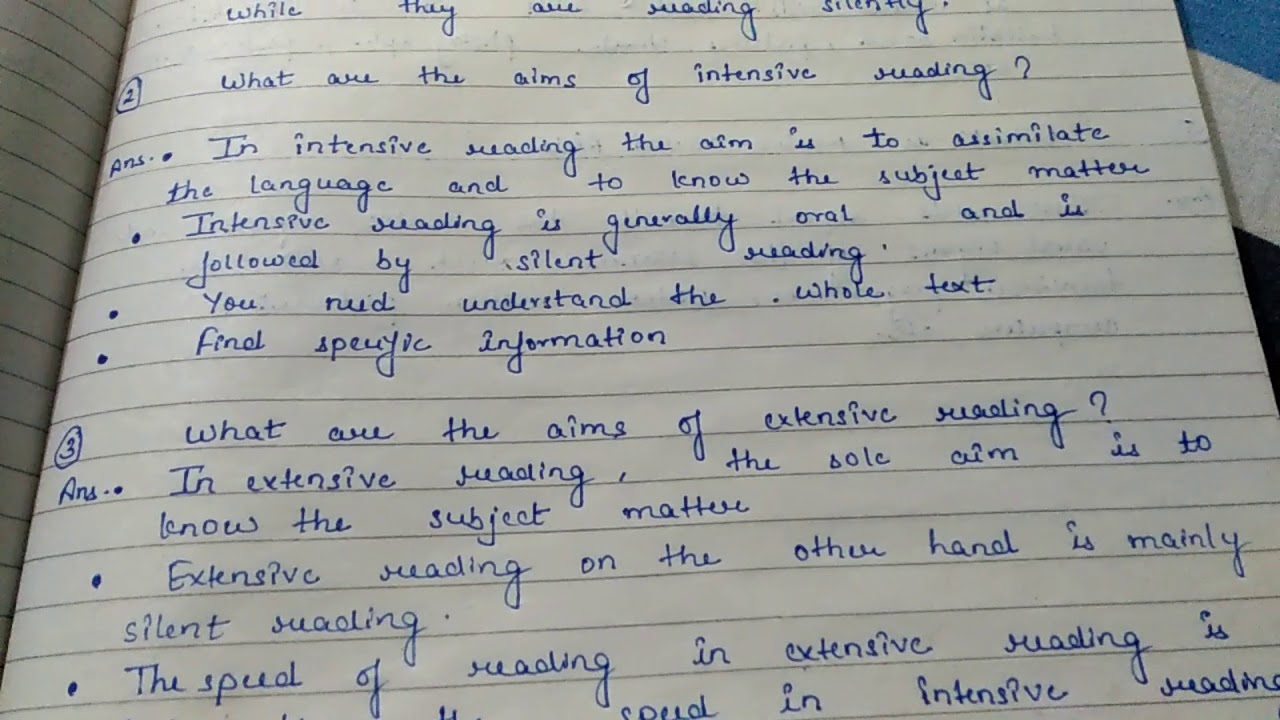 while they are reading silently.
② What are the aims of intensive reading?
Ans. • In intensive reading the aim is to assimilate
the language and to know the subject matter
• Intensive reading is generally oral and is
followed by silent reading.
• You need understand the whole text.
• Find specific information
③ What are the aims of extensive reading?
Ans. • In extensive reading, the sole aim is to
know the subject matter
• Extensive reading on the other hand is mainly
silent reading.
• The speed of reading in extensive reading is
speed in intensive reading